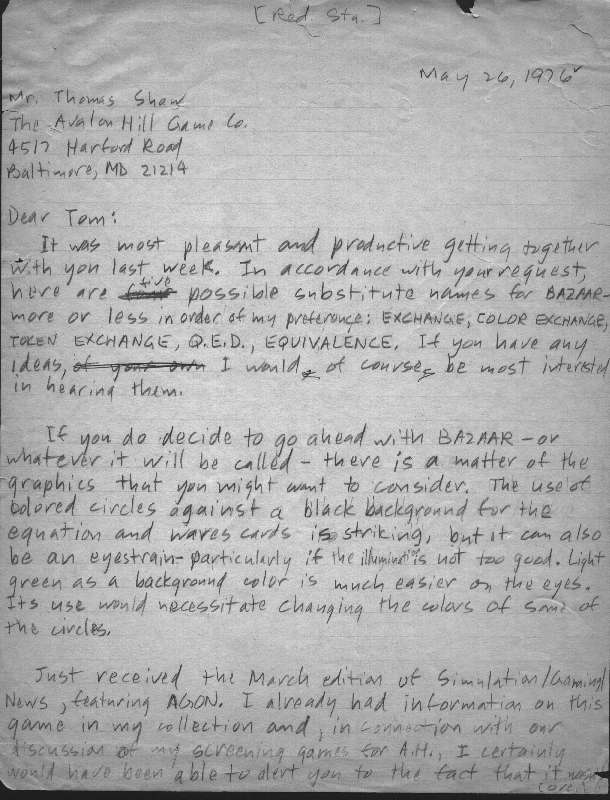 [Red Sta.]
May 26, 1976
Mr. Thomas Shaw
The Avalon Hill Game Co.
4517 Harford Road
Baltimore, MD 21214
Dear Tom:
It was most pleasant and productive getting together
with you last week. In accordance with your request,
here are five possible substitute names for BAZAAR-
more or less in order of my preference: EXCHANGE, COLOR EXCHANGE,
TOKEN EXCHANGE, Q.E.D., EQUIVALENCE. If you have any
ideas, of your own I would, of course, be most interested
in hearing them.
If you do decide to go ahead with BAZAAR - or
whatever it will be called - there is a matter of the
graphics that you might want to consider. The use of
colored circles against a black background for the
equation and wares cards is striking, but it can also
be an eyestrain - particularly if the illumination is not too good. Light
green as a background color is much easier on the eyes.
Its use would necessitate changing the colors of some of
the circles.
Just received the March edition of Simulation/Gaming/
News, featuring AGON. I already had information on this
game in my collection and, in connection with our
discussion of my screening games for A.H., I certainly
would have been able to alert you to the fact that it wasn't
(over)